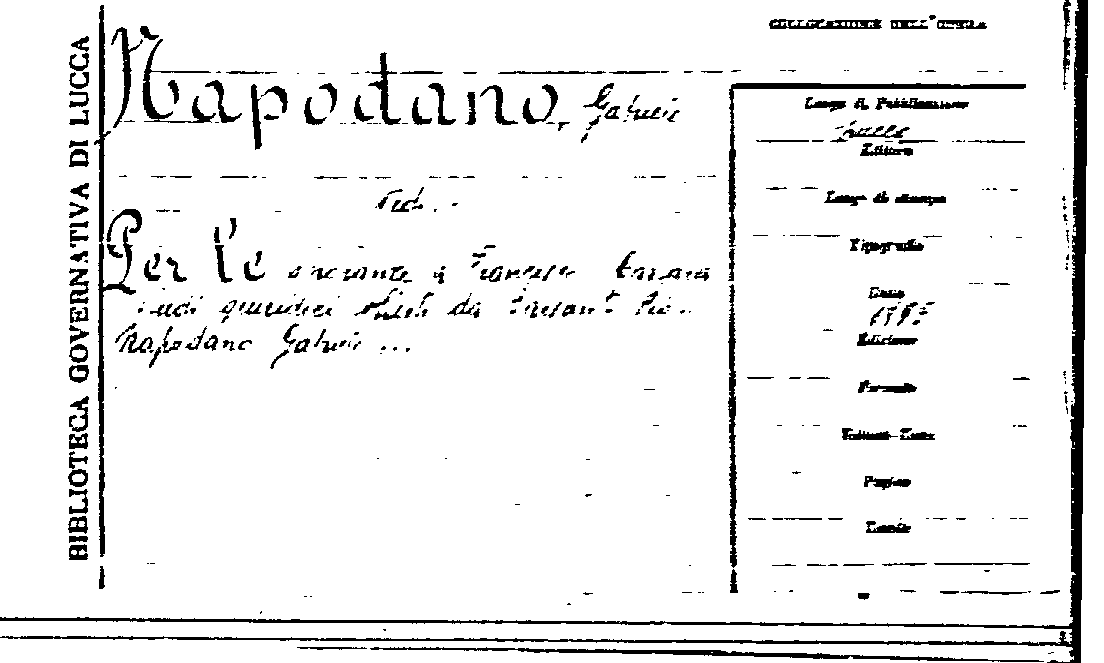 BIBLIOTECA GOVERNATIVA DI LUCCA
COLLOCAZIONE DELL'OPERA
Napodano, Gabriele
Ved. ..
Per le onoranze a Francesco Carrara
studi giuridici offerti da
Napodano Gabriele ...
Luogo di Pubblicazione
Lucca
Editore
Luogo di stampa
Tipografia
Data
Edizione
Formato
Volumi-Tomi
Pagine
Tavole